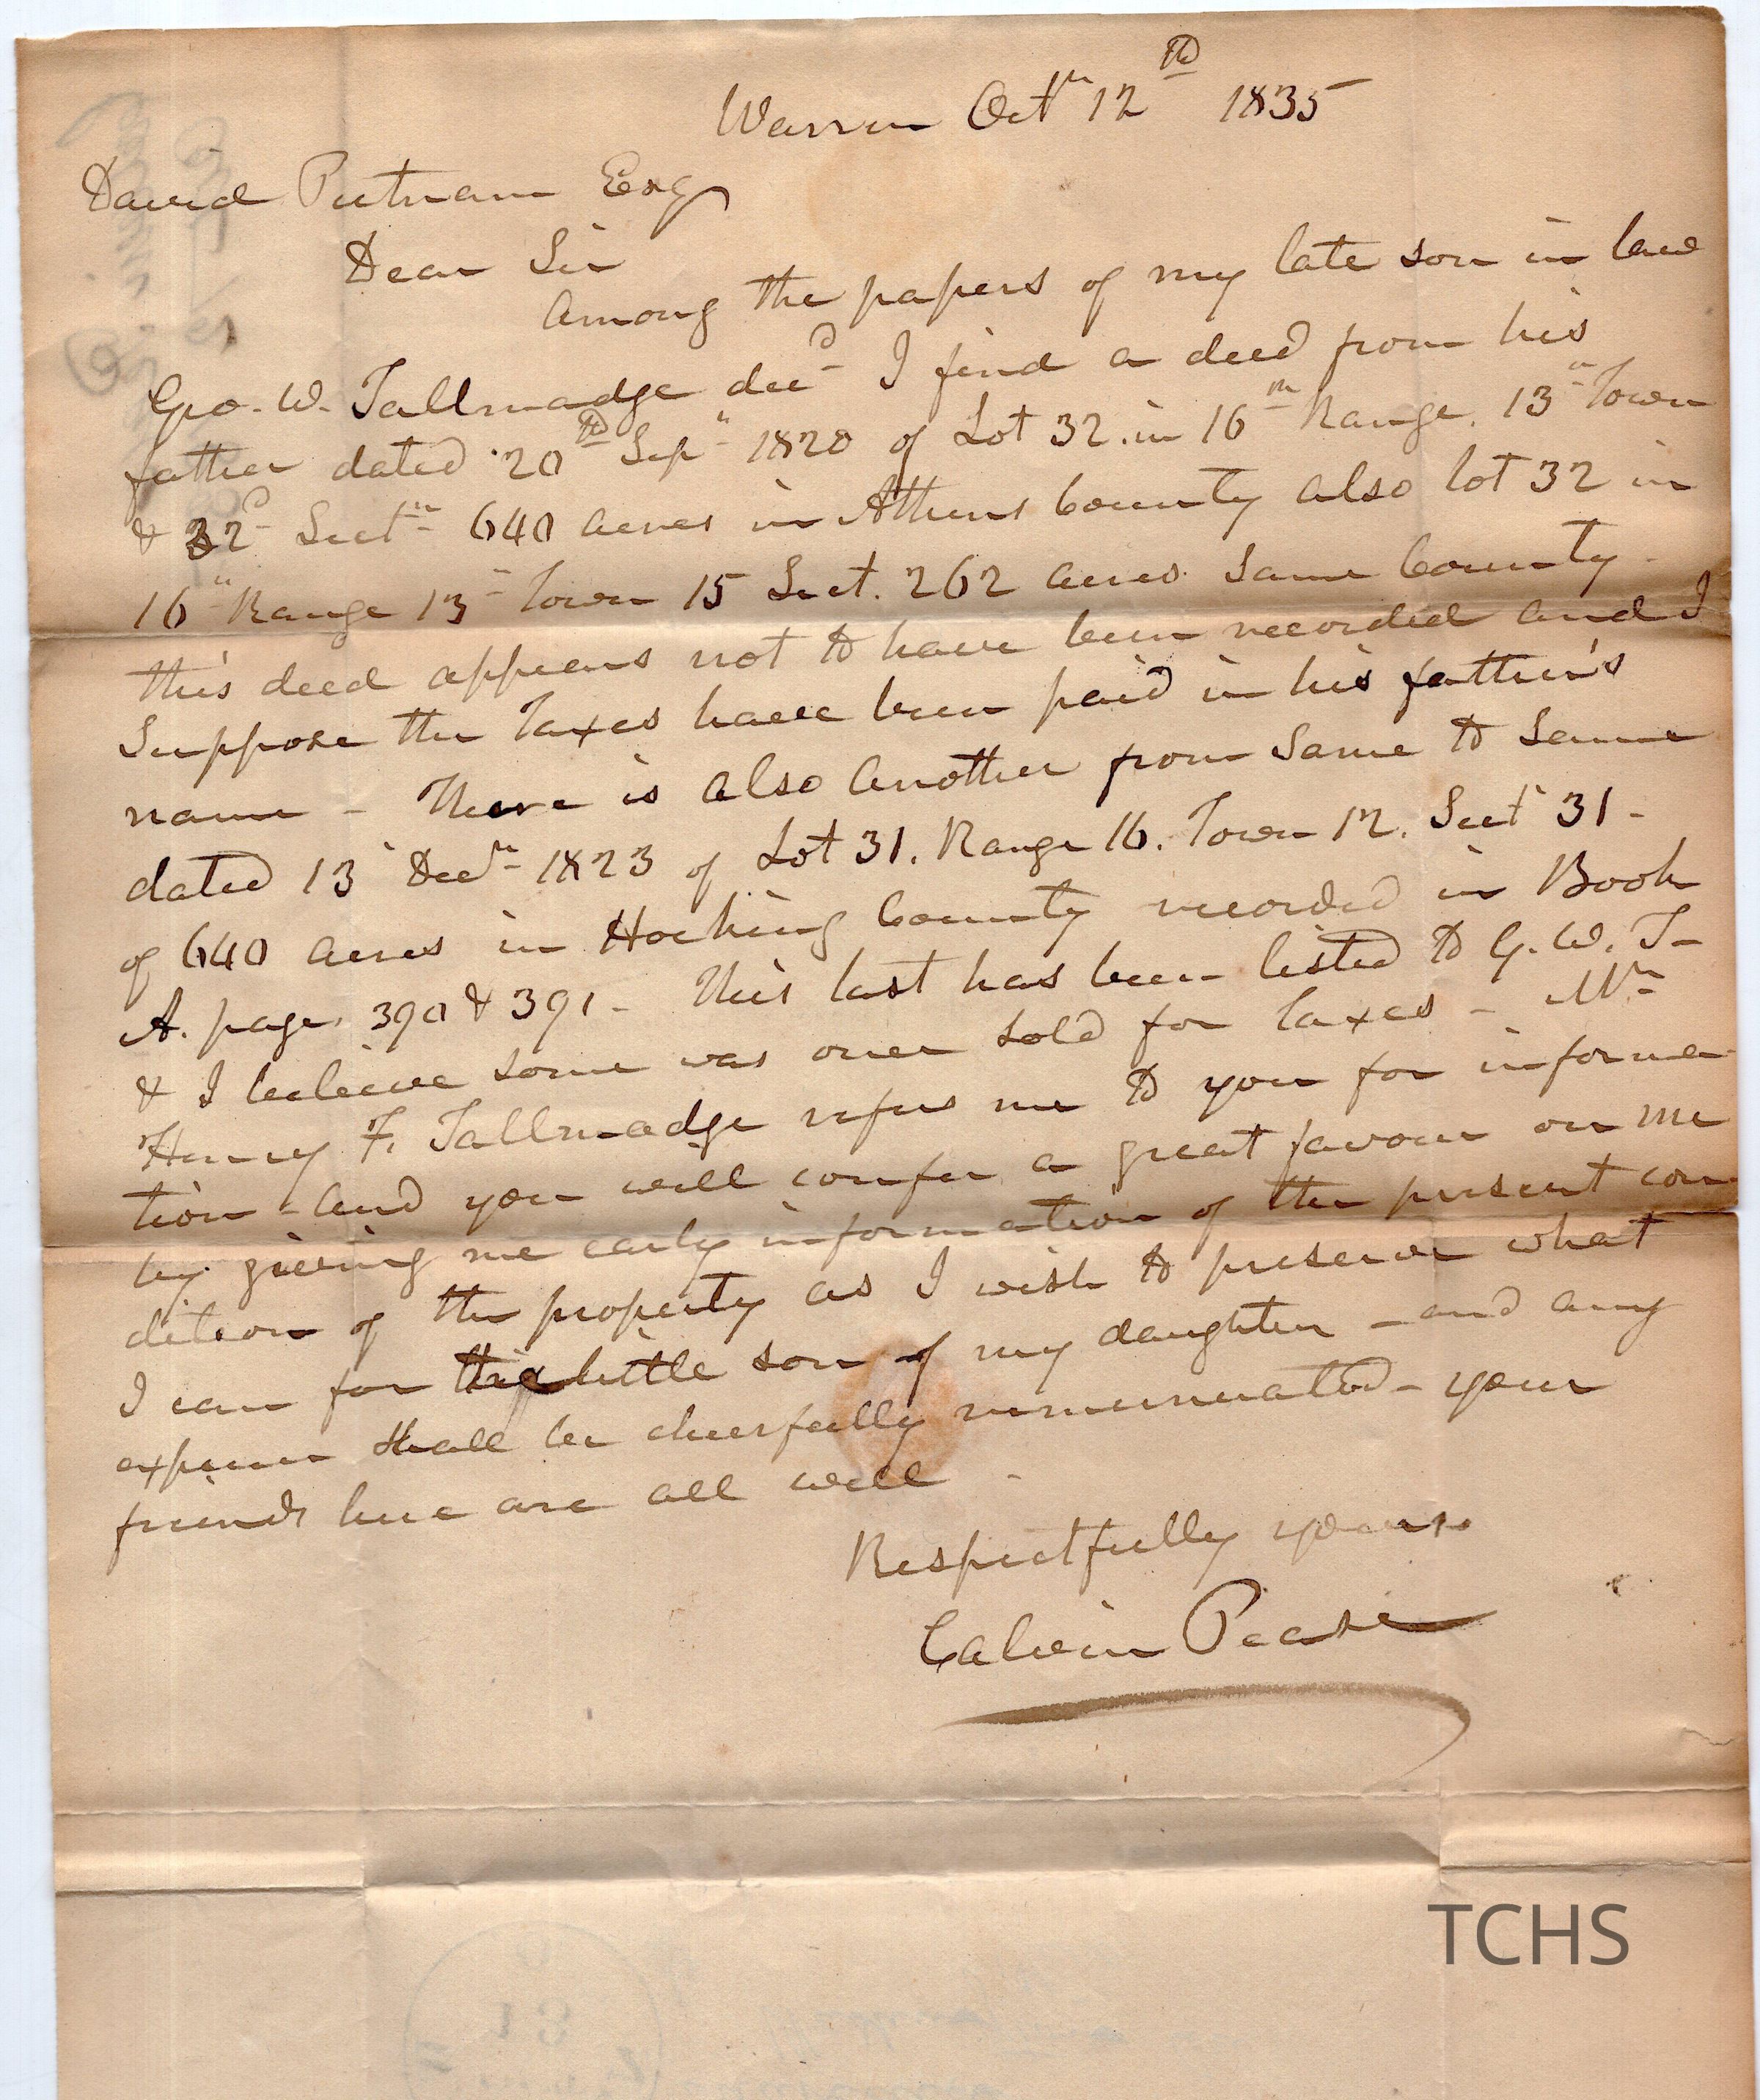 Warren Octr 12th 1835
David Putnam Esq
Dear Sir
Among the papers of my late son in law
Geo. W. Tallmadge decd I find a deed from his
father dated 20th Sepr 1820 of Lot 32 in 16th Range. 13th Town
& 32d Sectn 640 acres in Athens County also lot 32 in
16th Range 13th Town 15 Sect. 262 acres Same County -
this deed appears not to have been recorded and I
Suppose the Taxes have been paid in his father's
name - There is also another from Same to Same
dated 13th Decr 1823 of Lot 31. Range 16. Town 12. Sect 31 -
of 640 acres in Hocking County recorded in Book
A. page 390 & 391 - This last has been listed to G. W. T -
& I beleive some was once sold for Taxes - Mr
Henry F. Tallmadge refers me to you for informa
tion - and you will confer a great favour on me
by giving me early information of the present con
dition of the property as I wish to preserve what
I can for the little son of my daughter - and any
expense shall be cheerfully remunerated - your
friends here are all well -
Respectfully yours
Calvin Pease
TCHS